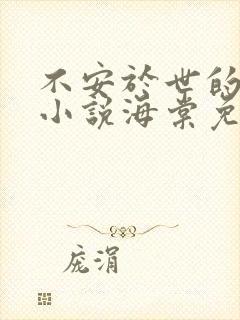 不安於世的
小说海棠免
庞涓